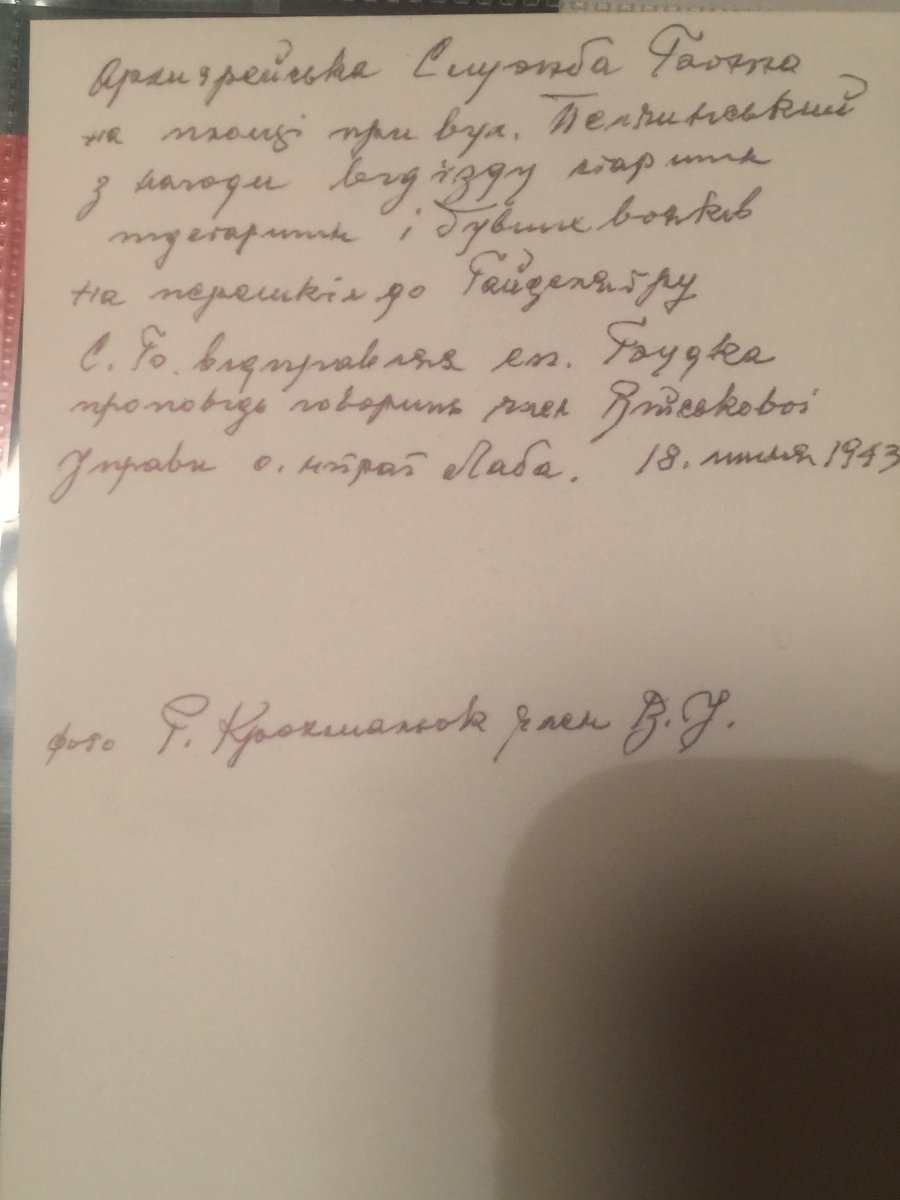 Архиєрейська Служба Божа
на площі при вул. Пелчинський
з нагоди відїзду старшин
підстаршин і бувших вояків
на перешкіл до Гайделяґру
С. Бо. відправляя еп. Будка
проповідь говорить член Військової
Управи о. мітрат Лаба. 18. липня 1943
фото Р. Крохмалюк член В. У.